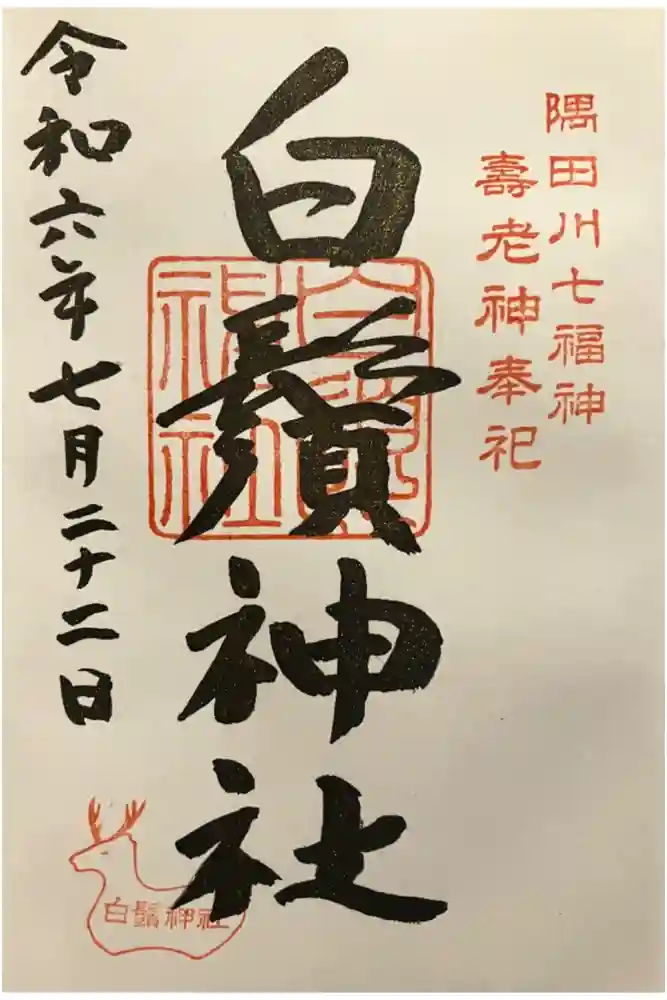 隅田川七福神
壽老神奉祀
白鬚神社
白鬚神社
令和六年七月二十二日
白鬚神社